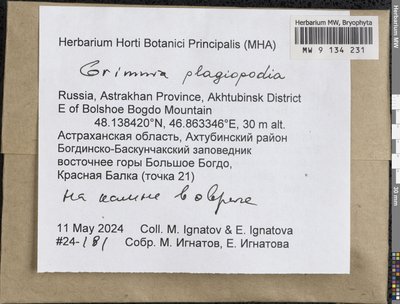 Herbarium MW, Bryophyta
MW 9 134 231
Herbarium Horti Botanici Principalis (MHA)
Grimmia plagiopodia
Russia, Astrakhan Province, Akhtubinsk District
E of Bolshoe Bogdo Mountain
48.138420°N, 46.863346°E, 30 m alt.
Астраханская область, Ахтубинский район
Богдинско-Баскунчакский заповедник
восточнее горы Большое Богдо,
Красная Балка (точка 21)
на камне в овраге
11 May 2024 Coll. M. Ignatov & E. Ignatova
#24-181 Собр. М. Игнатов, Е. Игнатова
Herbarium MW
30 mm